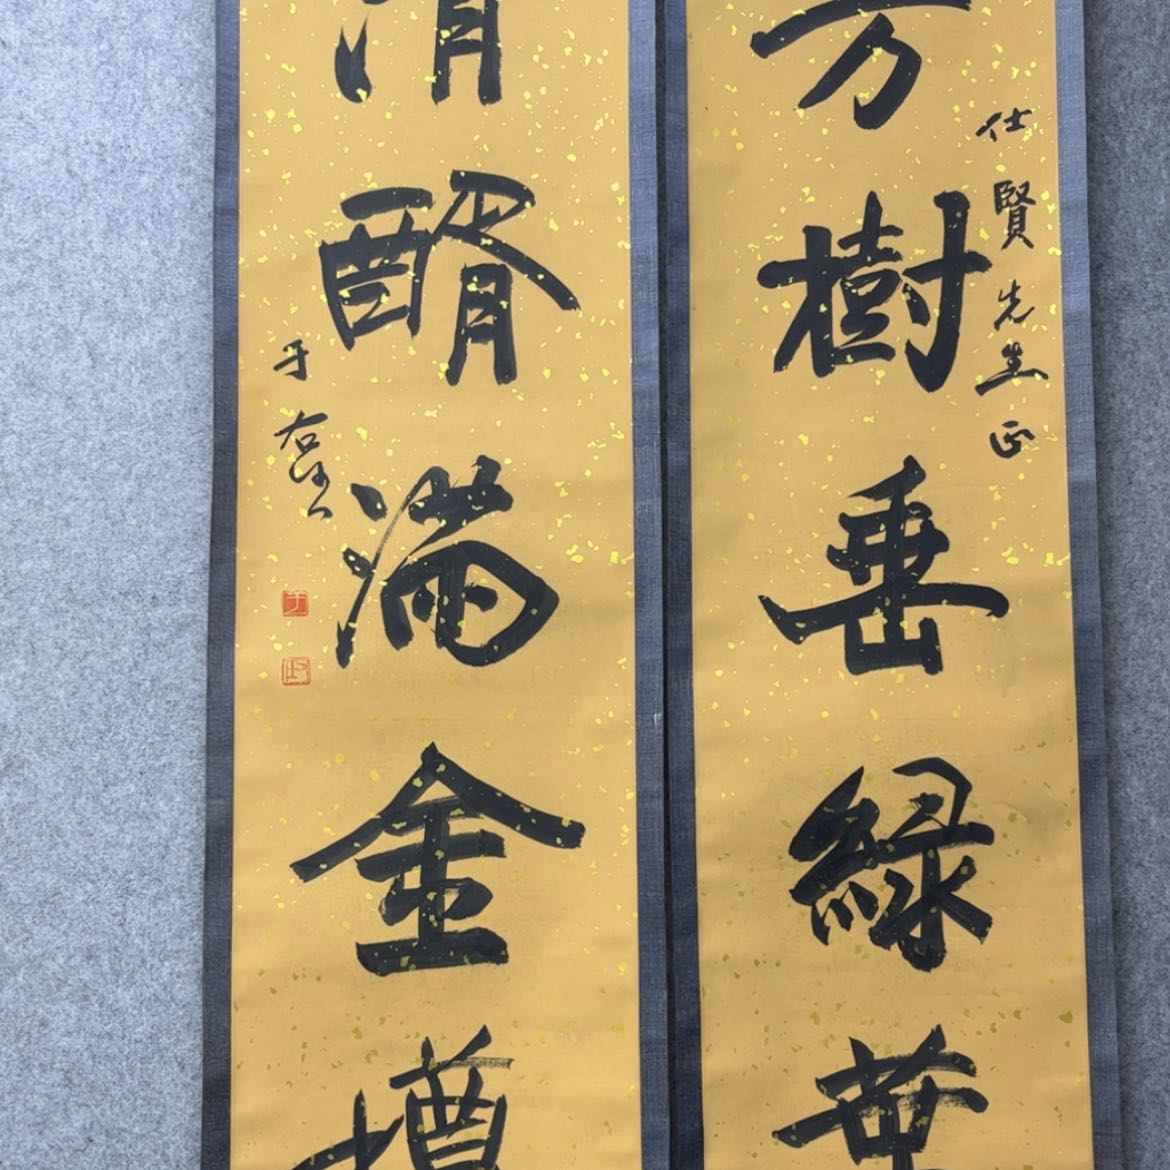 仕賢先生正
芳樹垂緑葉
清醑滿金樽
于右任